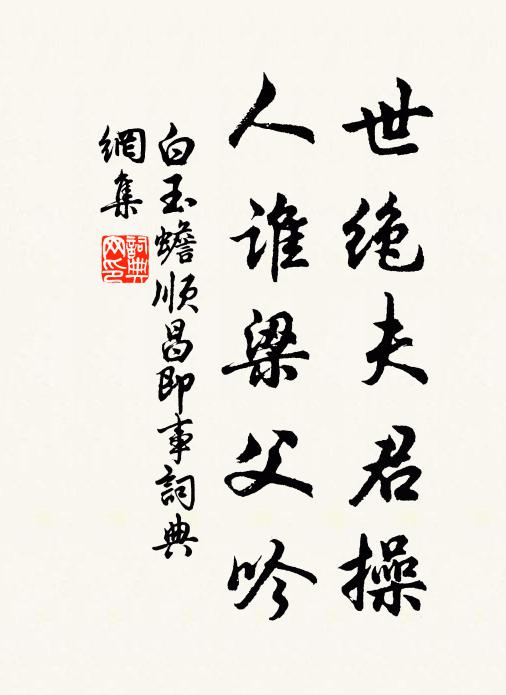 世绝夫君操
人谁梁父吟
白玉蟾順昌即事詞典
網集
詞典网印